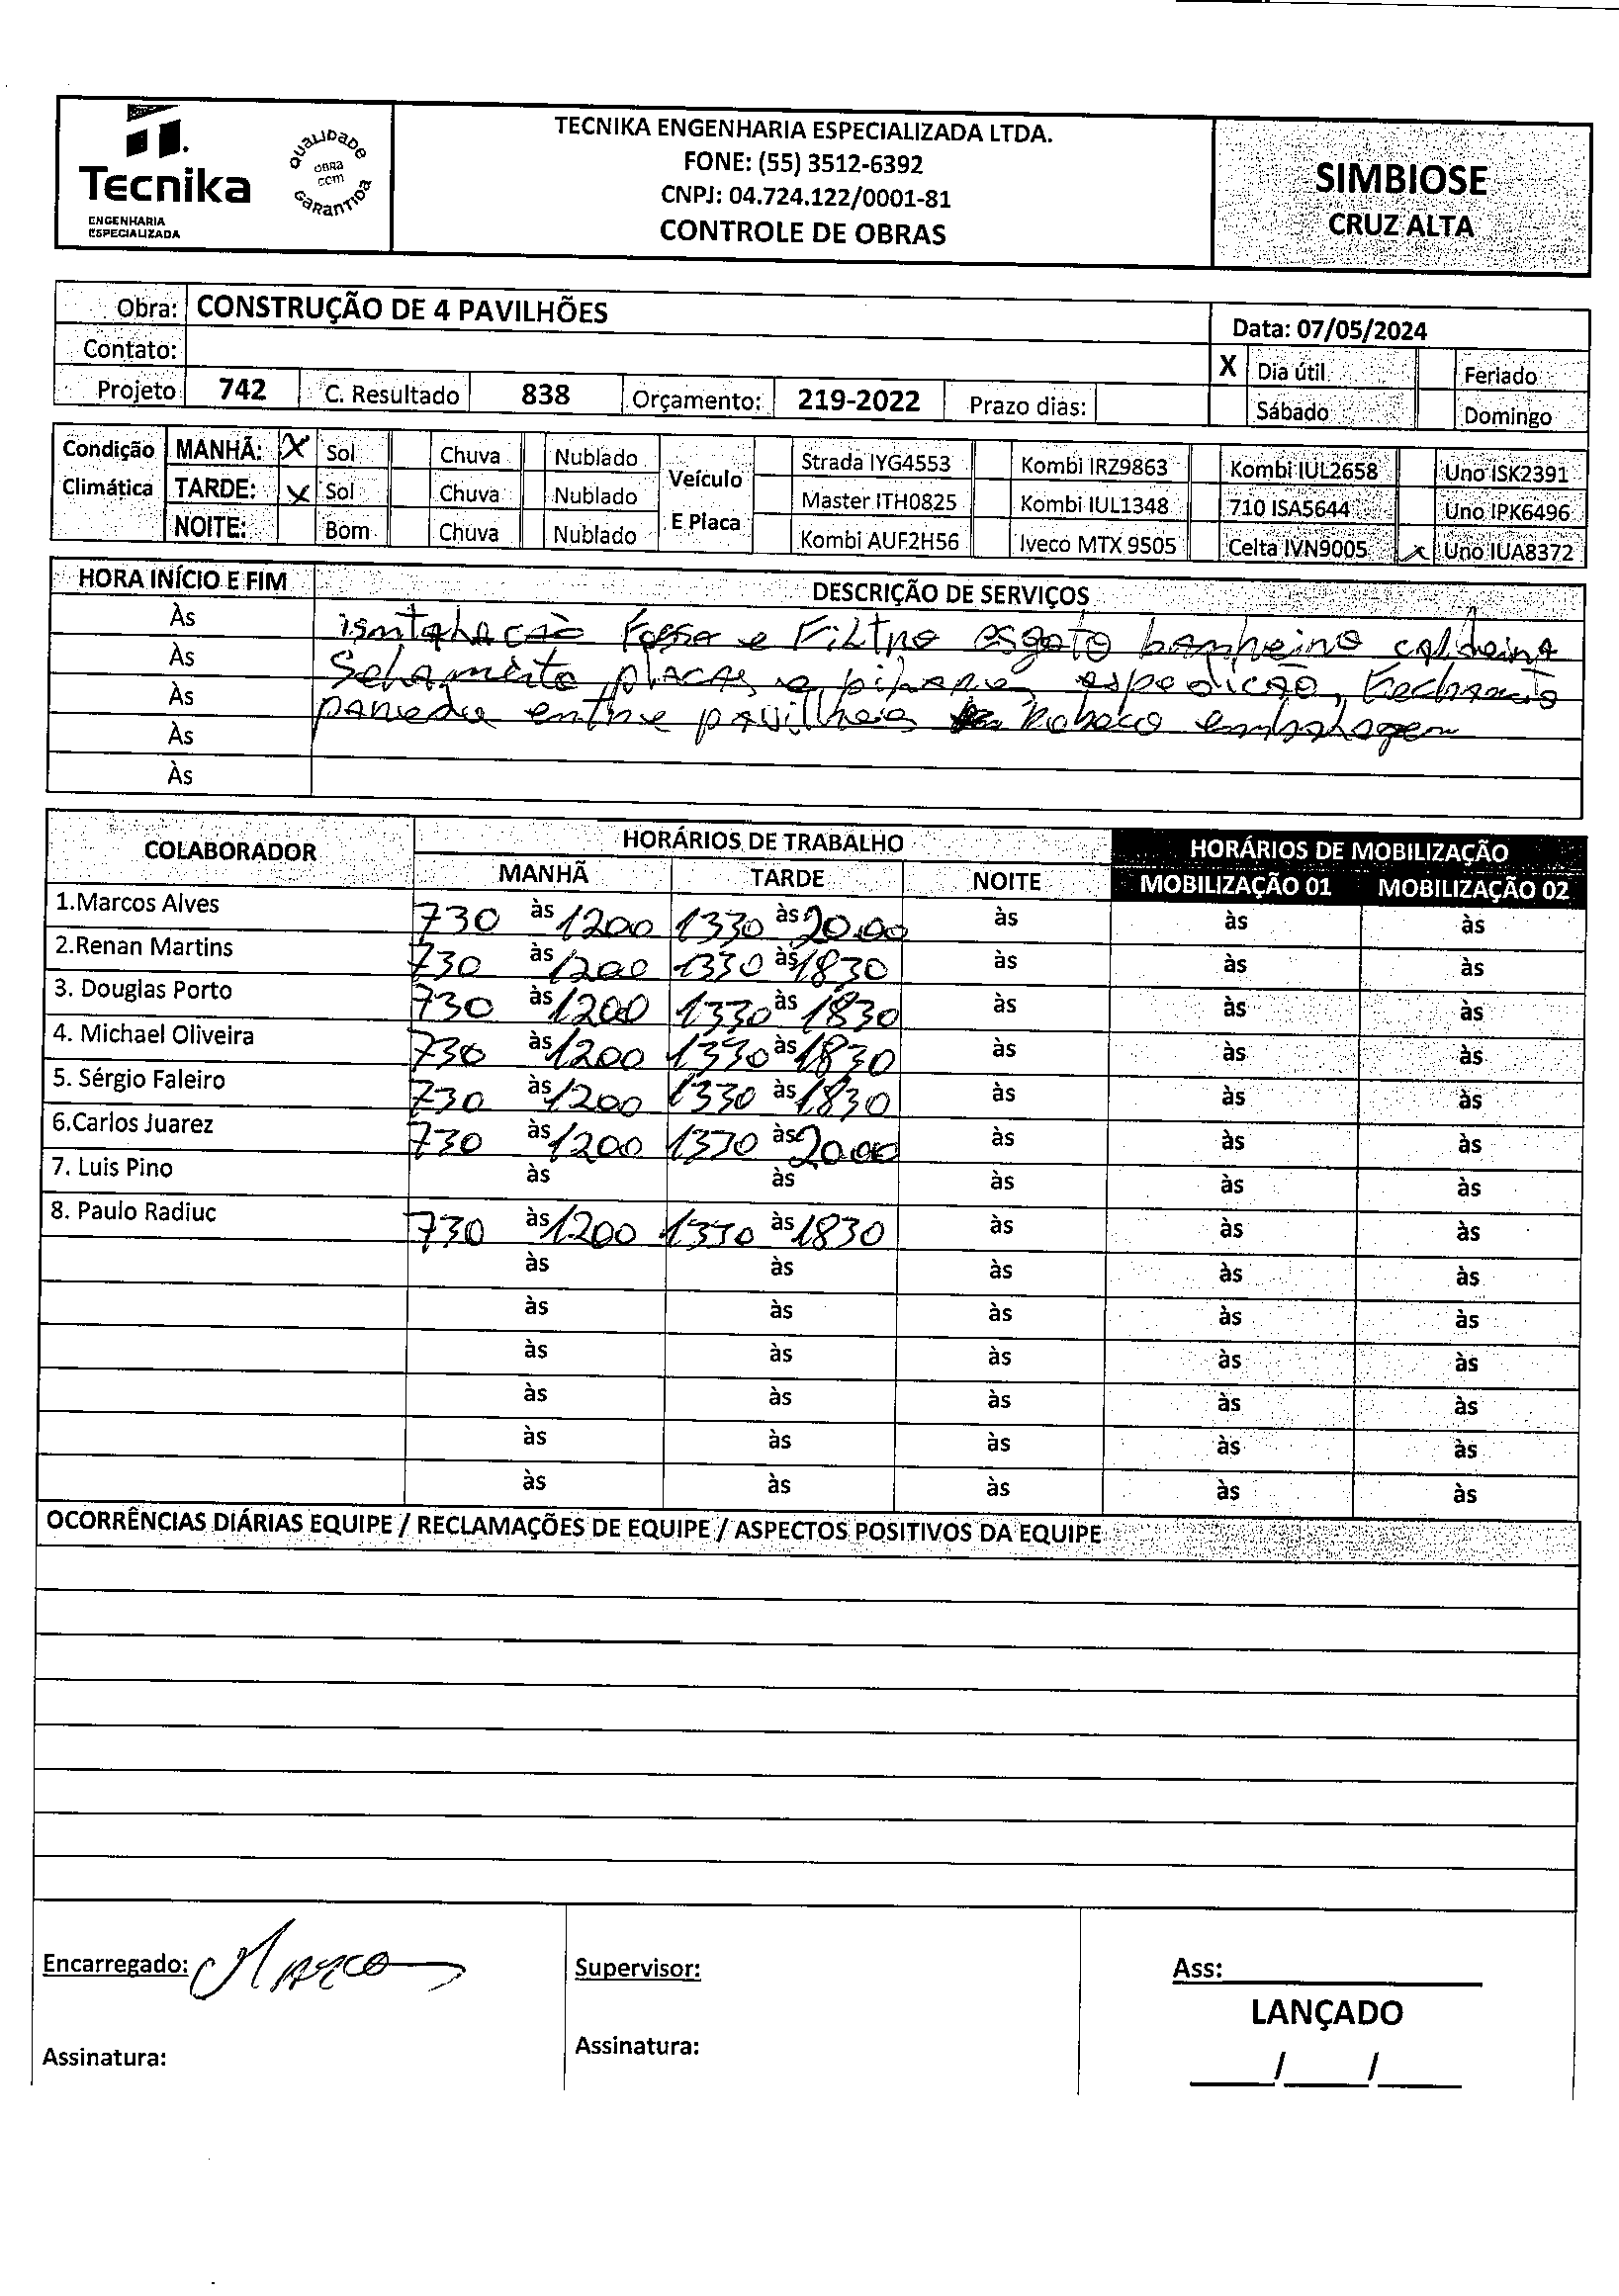 Tecnika
ENGENHARIA
ESPECIALIZADA
QUALIDADE
OBRA
COM
GARANTIDA
TECNIKA ENGENHARIA ESPECIALIZADA LTDA.
FONE: (55) 3512-6392
CNPJ: 04.724.122/0001-81
CONTROLE DE OBRAS
SIMBIOSE
CRUZ ALTA
Obra: CONSTRUÇÃO DE 4 PAVILHÕES
Data: 07/05/2024
Contato:
X Dia útil Feriado
Projeto 742 C. Resultado 838 Orçamento: 219-2022 Prazo dias:
Sábado Domingo
Condição MANHÃ: X Sol Chuva Nublado Veículo Strada IYG4553 Kombi IRZ9863 Kombi IUL2658 Uno ISK2391
Climática TARDE: X Sol Chuva Nublado Master ITH0825 Kombi IUL1348 710 ISA5644 Uno IPK6496
NOITE: Bom Chuva Nublado E Placa Kombi AUF2H56 Iveco MTX 9505 Celta IVN9005 X Uno IUA8372
HORA INÍCIO E FIM DESCRIÇÃO DE SERVIÇOS
Às isntalacão Fossa e Filtro esgoto banheiro caldeira
Às Selamento placas e pilares espedição, Fechamento
Às parede entre pavilheis Reboco embalagem
Às
Às
COLABORADOR HORÁRIOS DE TRABALHO HORÁRIOS DE MOBILIZAÇÃO
MANHÃ TARDE NOITE MOBILIZAÇÃO 01 MOBILIZAÇÃO 02
1.Marcos Alves 730 às 1200 1330 às 20.00 às às às
2.Renan Martins 730 às 1200 1330 às 1830 às às às
3. Douglas Porto 730 às 1200 1330 às 1830 às às às
4. Michael Oliveira 730 às 1200 1330 às 1830 às às às
5. Sérgio Faleiro 730 às 1200 1330 às 1830 às às às
6.Carlos Juarez 730 às 1200 1330 às 20.00 às às às
7. Luis Pino às às às às às
8. Paulo Radiuc 730 às 1200 1330 às 1830 às às às
às às às às às
às às às às às
às às às às às
às às às às às
às às às às às
às às às às às
OCORRÊNCIAS DIÁRIAS EQUIPE / RECLAMAÇÕES DE EQUIPE / ASPECTOS POSITIVOS DA EQUIPE
Encarregado: Marcos Supervisor: Ass:
LANÇADO
Assinatura: Assinatura:
/ /